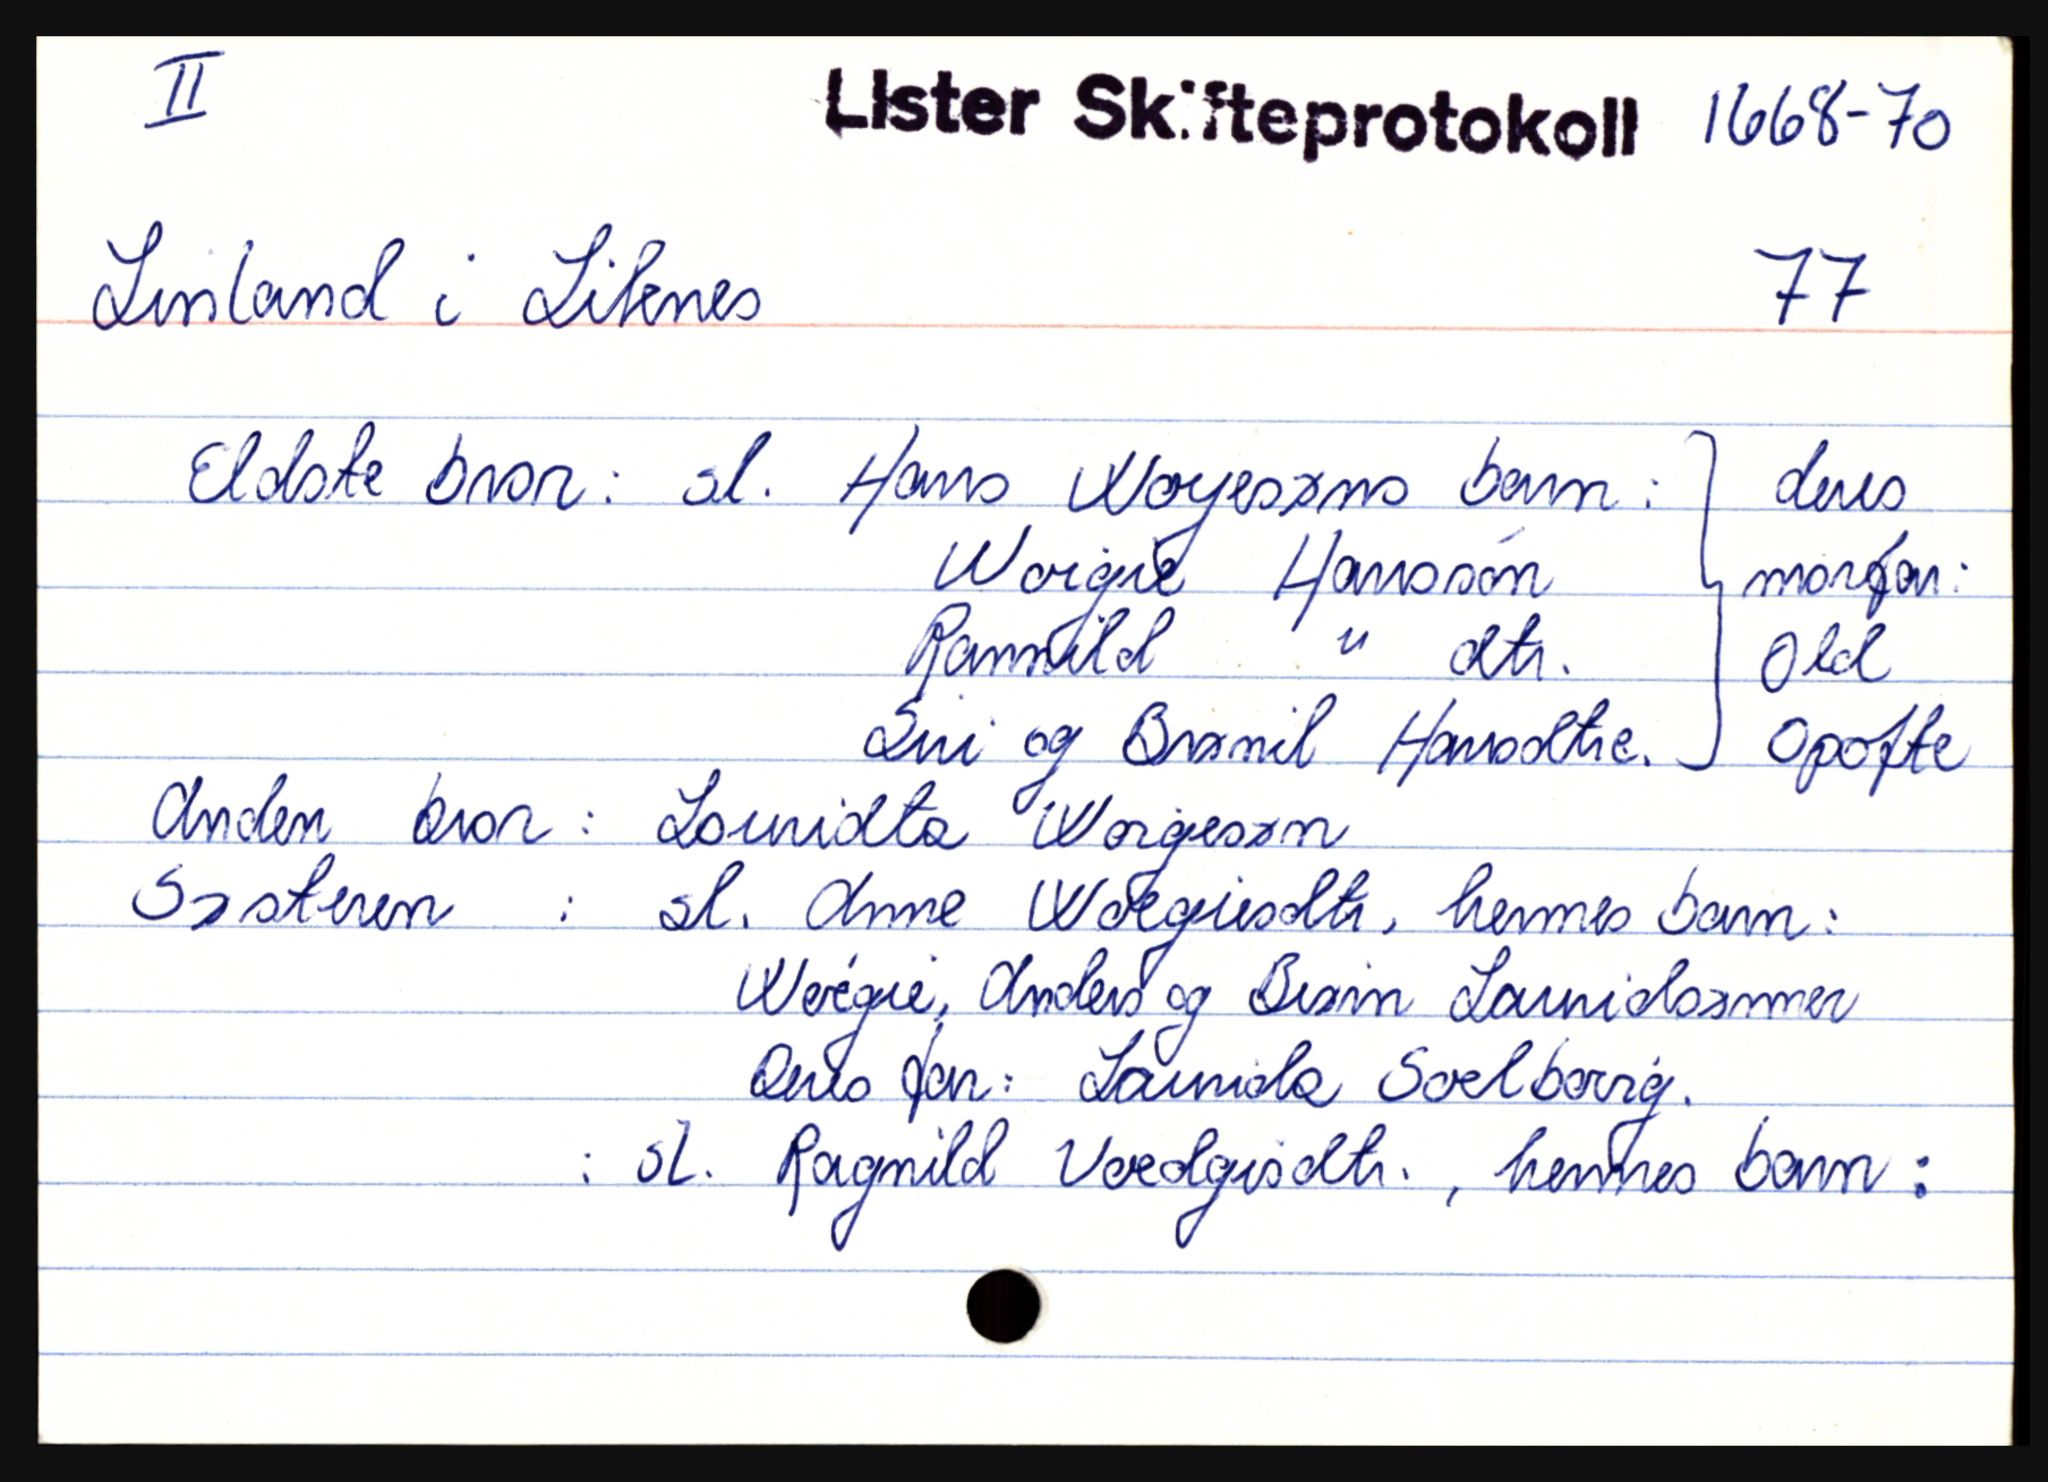 II Lister Skifteprotokoll 1668-70
Linland i Liknes 77
Eldste bror: sl. Hans Woyesøns barn: deres
Woigie Hanssön morfar:
Rannild " dtr. Old
Siri og Brønil Hansdtre. Opofte
Anden bror: Lauridtz Woigesøn
Søsteren : sl. Anne Woegiesdtr, hennes barn:
Woégie, Anders og Brøin Lauridsønner
Deres far: Lauridz Soelborrig.
: sl. Ragnild Voedgisdtr., hennes barn: